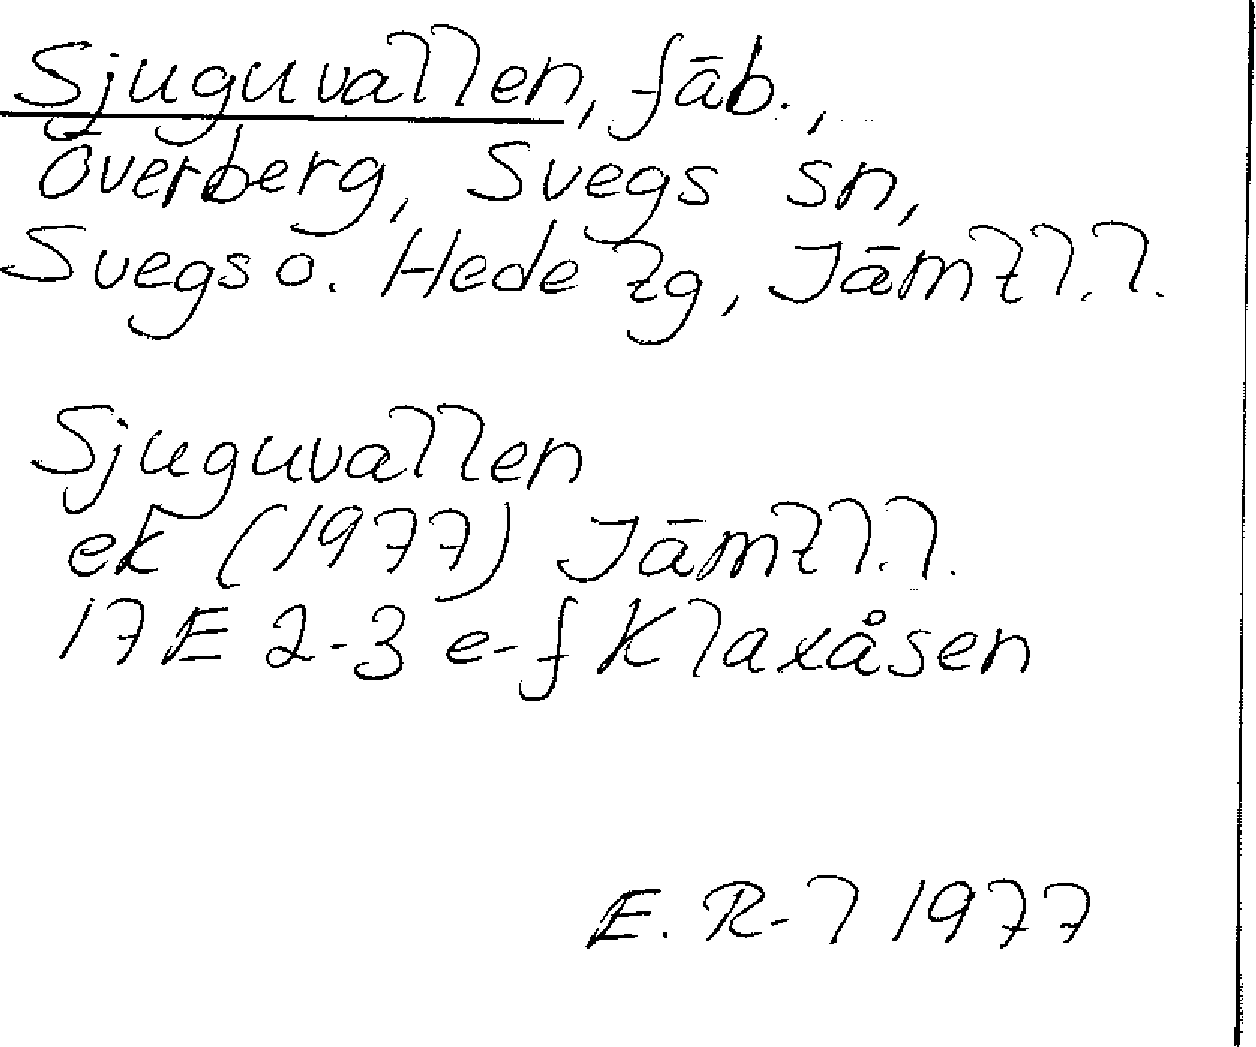 Sjuguvallen, fäb.,
Överberg, Svegs sn,
Svegs o. Hede tg, Jämtl.l.
Sjuguvallen
ek (1977) Jämtl.l.
17E 2-3 e-f Klaxåsen
E. R-l 1977